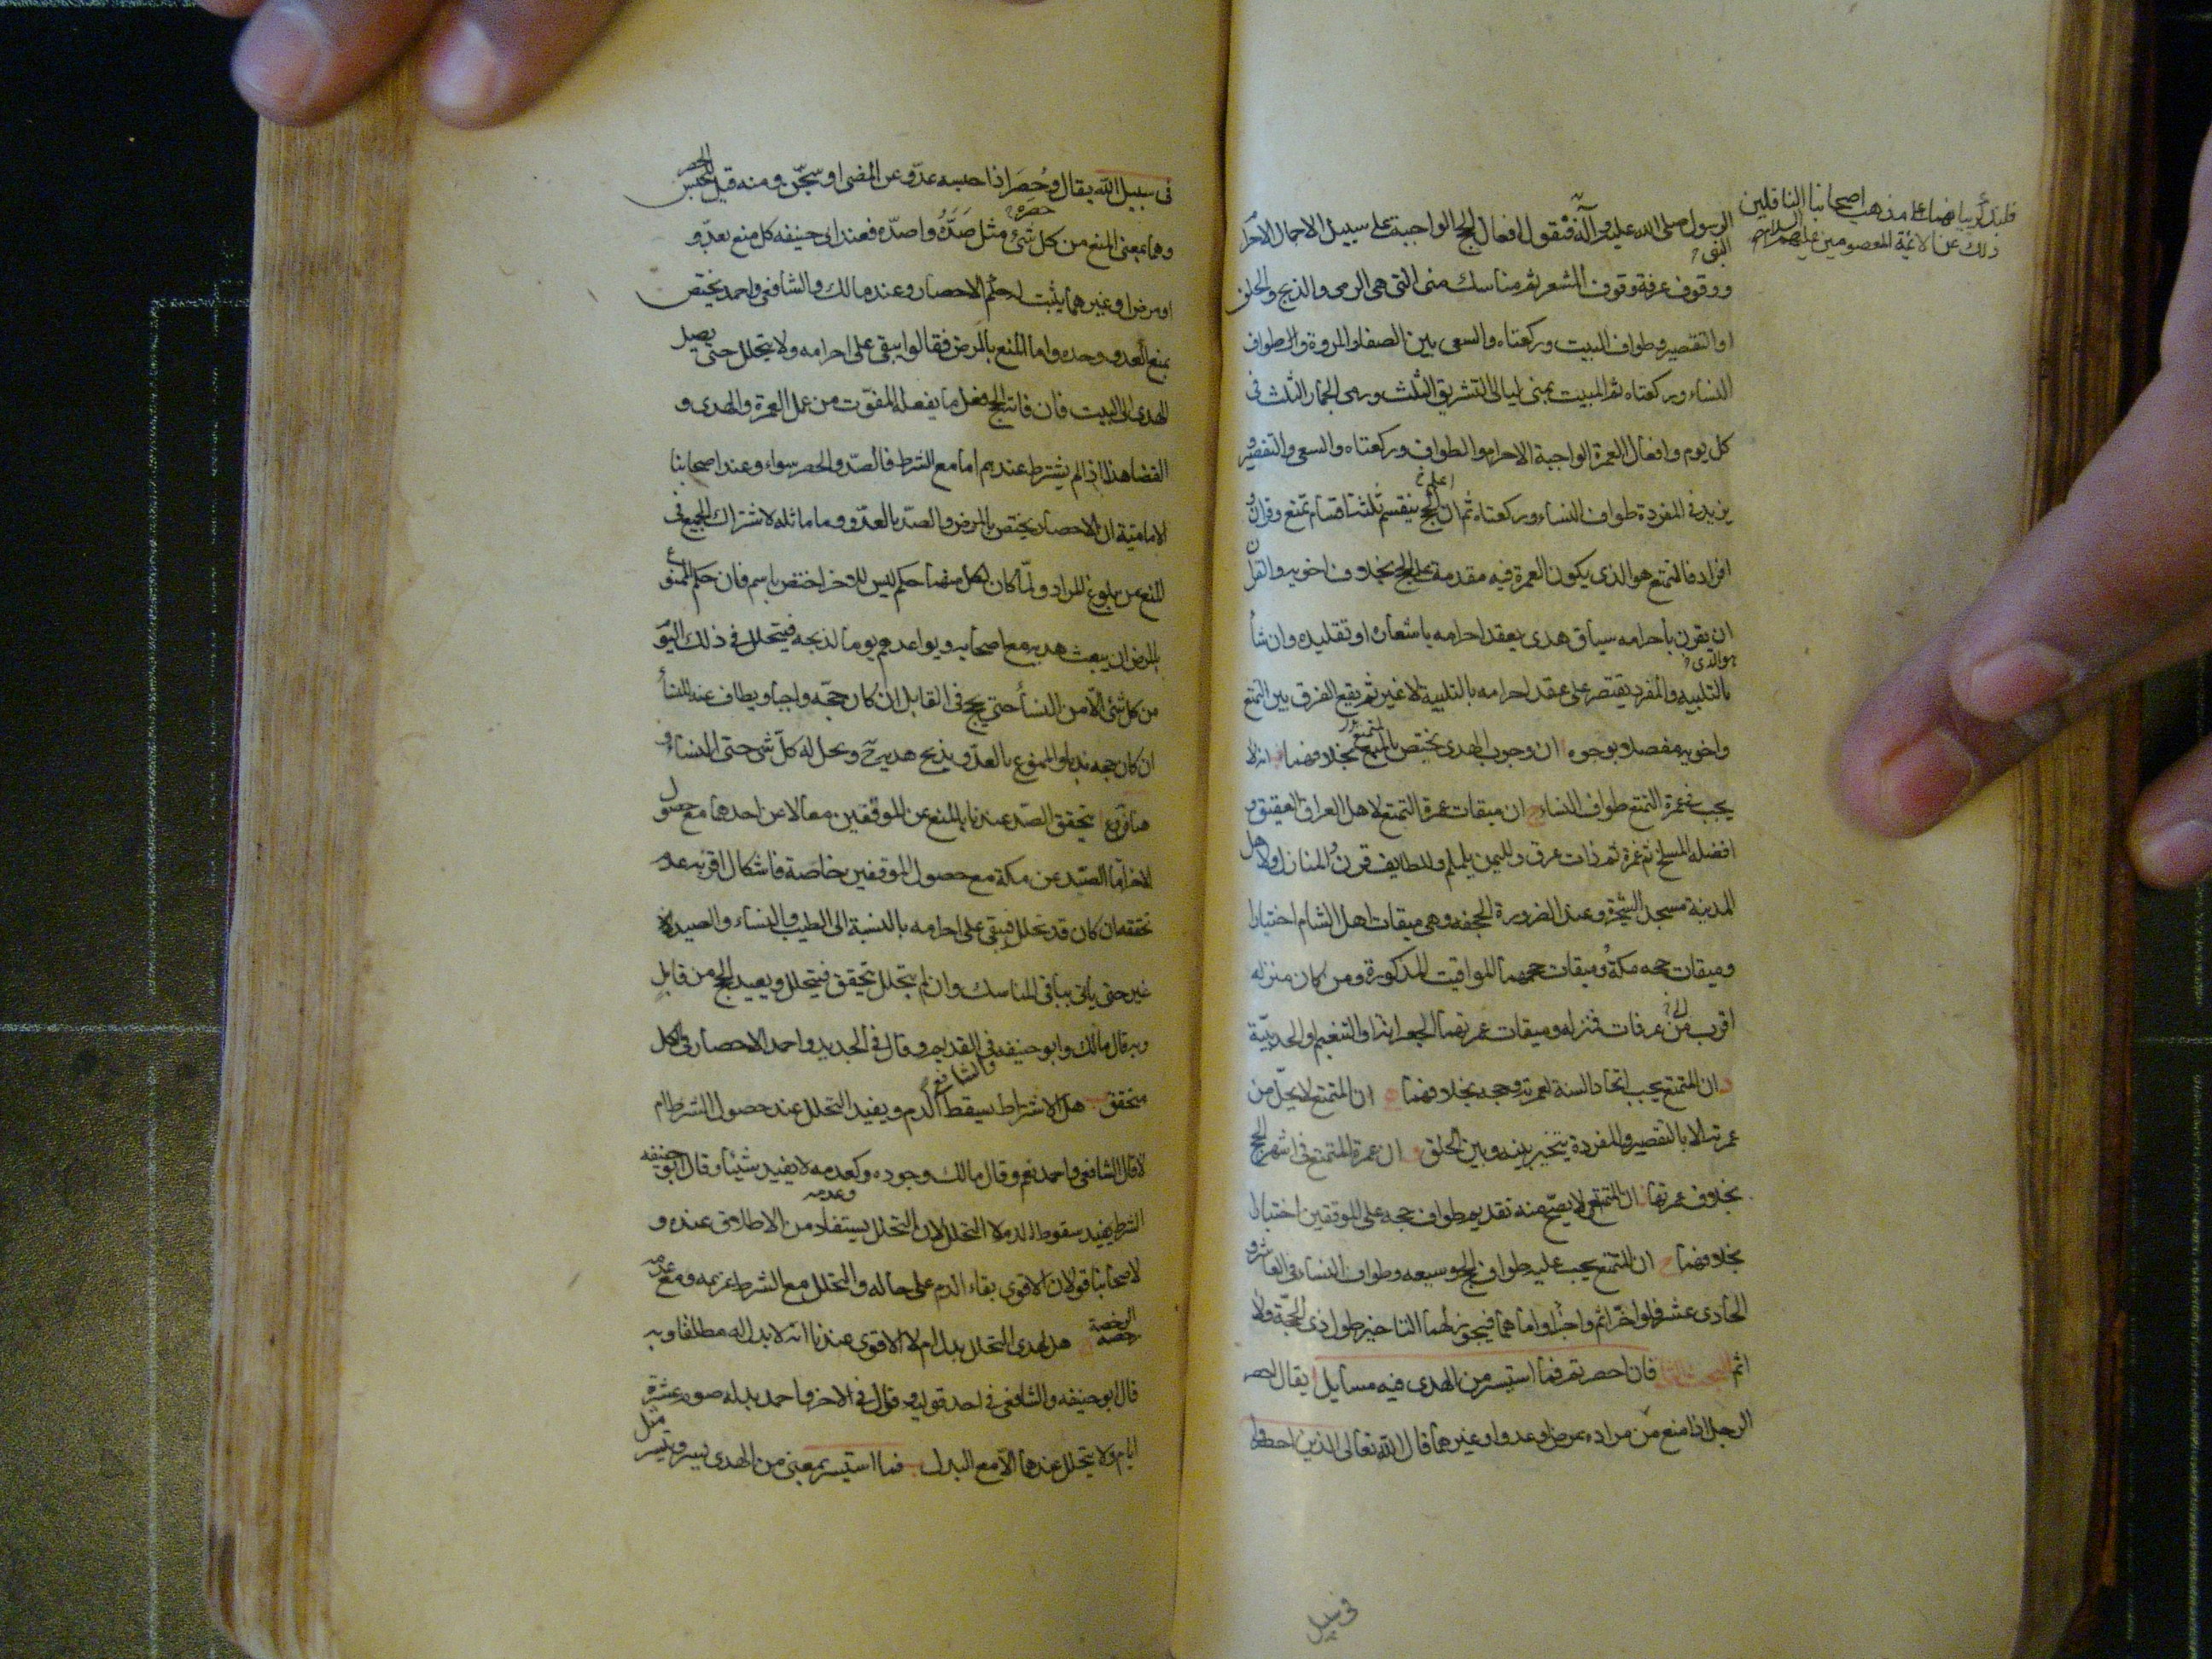 الرسول صلى الله عليه وآله فنقول افعال الحج الواجبة على سبيل الاجمال الاحرام
النبى
فلنذكر بيانهما على مذهب اصحابنا الناقلين
ذلك عن الائمة المعصومين عليهم السلام
ووقوف عرفة وقوف المشعر ثم مناسك منى التى هى الرمى والذبح والحلق
او التقصير وطواف البيت وركعتاه والسعى بين الصفا والمروة وطواف
النساء وركعتاه ثم المبيت بمنى ليالى التشريق الثلث ورمى الجمار الثلث فى
كل يوم وافعال العمرة الواجبة الاحرام والطواف وركعتاه والسعى والتقصير و
يزيد فى المفردة طواف النساء وركعتاه ثم اعلم ان الحج ينقسم ثلثة اقسام تمتع وقران و
افراد فالتمتع هو الذى يكون العمرة فيه مقدمة على الحج بخلاف اخويه والقران
ان يقرن باحرامه سياق هدى يعقد احرامه باشعاره او تقليده وان شاء
هو الذى
بالتلبيه والمفرد يقتصر على عقد احرامه بالتلبية لا غير ثم يقع الفرق بين التمتع
واخويه مفصلا بوجوه ا ان وجوب الهدى يختص بالتمتع بخلافهما ب انه لا
يجب فى عمرة التمتع طواف النساء ج ان ميقات عمرة التمتع لاهل العراق العقيق و
افضله المسلخ ثم غمرة ثم ذات عرق ولليمن يلملم وللطايف قرن المنازل ولاهل
المدينة مسجد الشجرة وعند الضرورة الجحفه وهى ميقات اهل الشام اختيارا
وميقات حجه مكة وميقات حجهما المواقيت المذكورة ومن كان منزله
اقرب من الى عرفات فمنزله وميقات عمرتهما الجعرانة او التنعيم او الحديبية
د ان المتمتع يجب اتحاد السنة لعمرته وحجه بخلافهما ه ان المتمتع لا يحل من
عمرته الا بالتقصير والمفردة يتخير بينه وبين الحلق و ان عمرة المتمتع فى اشهر الحج
بخلاف عمرتهما ز ان المتمتع لا يصح منه تقديم طواف حجه على الموقفين اختيارا
بخلافهما ح ان المتمتع يجب عليه طواف الحج وسعيه وطواف النساء فى العاشر و
الحادى عشر فلو اخر اثم واجزا واما هما فيجوز لهما التاخير طول ذى الحجة ولا
اثم البحث الثانى فان احصرتم فما استيسر من الهدى فيه مسايل ا يقال احصر
الرجل اذا منع من مراده بمرض او عدو او غيرهما قال الله تعالى الذين احصروا
فى سبيل
فى سبيل الله يقال وحصر اذا حبسه عدو عن المضى او سجن ومنه قيل للحبس الحصر
وهما بمعنى المنع من كل شىء مثل صده واصده فعند ابى حنيفه كل منع بعدو
او مرض او غيرهما يثبت له حكم الاحصار وعند مالك والشافعى واحمد يختص
بمنع العدو وحده واما المنع بالمرض فقالوا يبقى على احرامه ولا يتحلل حتى يصل
الهدى الى البيت فان فاته الحج فعل ما يفعله المفوت من عمل العمرة والهدى و
القضا هذا اذا لم يشترط عندهم اما مع الشرط فالصد والحصر سواء وعند اصحابنا
الامامية ان الاحصار يختص بالمرض والصد بالعدو وما ماثله لاشتراك الجميع فى
المنع من بلوغ المراد ولما كان لكل منهما حكم ليس للآخر اختص باسم فان حكم الممنوع
بالمرض ان يبعث هديه مع اصحابه ويواعدهم يوما لذبحه فيتحلل فى ذلك اليوم
من كل شئ الا من النساء حتى يحج فى القابل ان كان حجه واجبا ويطاف عنه للنساء
ان كان حجه ندبا والممنوع بالعدو يذبح هديه ح ويحل له كل شى حتى النساء و
هنا فروع ا يتحقق الصد عندنا بالمنع عن الموقفين معا لا عن احدهما مع حصول
الآخر اما الصد عن مكة مع حصول الموقفين خاصة فاشكال اقربه عدم
تحققه ان كان قد تحلل فيبقى على احرامه بالنسبة الى الطيب والنساء والصيد لا
غير حتى ياتى بباقى المناسك وان لم يتحلل تحقق فيتحلل ويعيد الحج من قابل
وبه قال مالك وابو حنيفه والشافعى فى القديم وقال فى الجديد واحمد الاحصار فى الكل
متحقق ب هل الاشتراط يسقط الدم ويفيد التحلل عند حصول الشرط ام
لا قال الشافعى واحمد نعم وقال مالك وجوده وكعدمه لا يفيد شيئا وقال ابو حنيفه
وعدمه
الشرط يفيد سقوط الدم لا التحلل لان التحلل يستفاد من الاطلاق عنده و
لاصحابنا قولان الاقوى بقاء الدم على حاله والتحلل مع الشرط عزيمه ومع عدمه
رخصه ج هل لهدى التحلل بدل ام لا الاقوى عندنا انه لا بدل له مطلقا وبه
قال ابو حنيفه والشافعى فى احد قوليه وقال فى الاخر واحمد بدله صوم عشرة
ايام ولا يتحلل عندهما الا مع البدل فما استيسر بمعنى من الهدى يسر وتيسر مثل